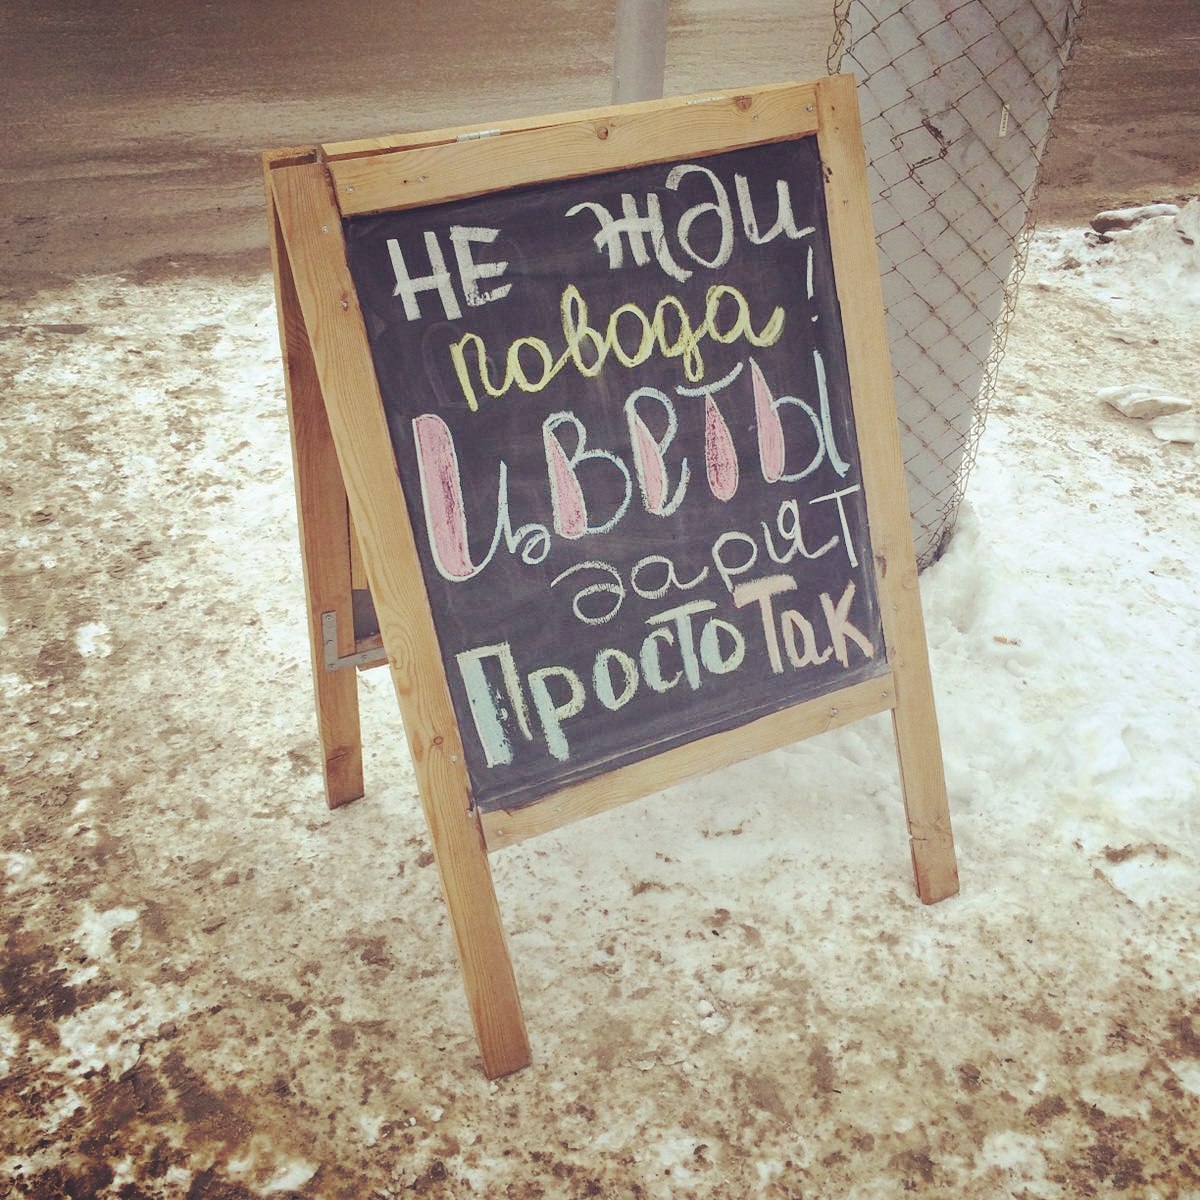 НЕ ЖДИ
повода!
ЦВЕТЫ
дарят
Просто Так